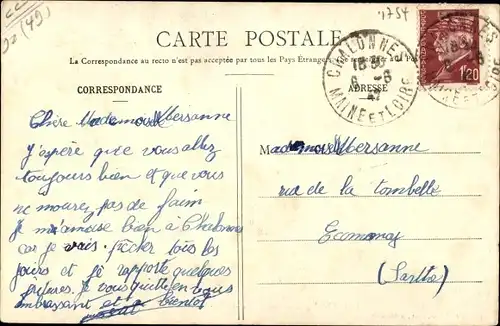 (49)
1754
CARTE POSTALE
La Correspondance au recto n'est pas acceptée par tous les Pays Étrangers
CORRESPONDANCE
ADRESSE
CHALONNES
18 30
6 -6
42
MAINE ET LOIRE
1f20
Chère Mademoiselle Mersanne
J'apère que vous allez
toujours bien et que vous
ne mourez pas de faim
Je m'amuse bien à Chalonnes
car je vais pêcher tous les
jours et je rapporte quelques
Je vous quitte en vous
embrassant et à bientôt
Mademoiselle Mersanne
rue de la tombelle
Ecommoy
(Sarthe)